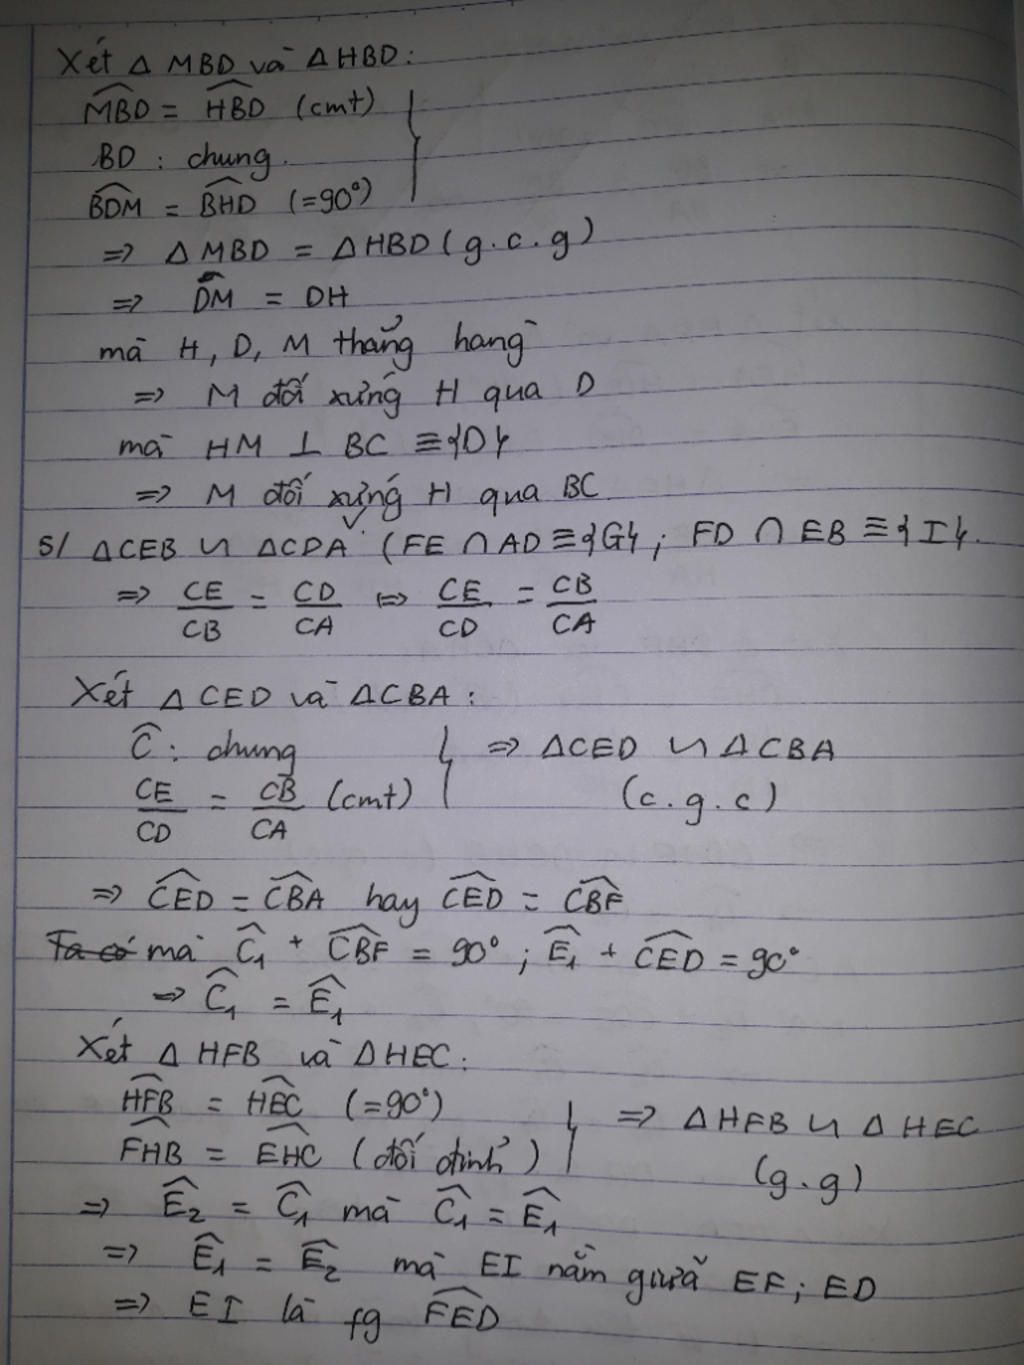 Xét Δ MBD và Δ HBD:
\widehat{MBD} = \widehat{HBD} (cmt)
BD : chung.
\widehat{BDM} = \widehat{BHD} (=90°)
=> Δ MBD = Δ HBD (g.c.g)
=> DM = DH
mà H, D, M thẳng hàng
=> M đối xứng H qua D
mà HM ⊥ BC ≡ {D}
=> M đối xứng H qua BC
5/ ΔCEB ∽ ΔCDA (FE ∩ AD ≡ {G}; FD ∩ EB ≡ {I}.
=> CE/CB = CD/CA <=> CE/CD = CB/CA
Xét Δ CED và ΔCBA :
\widehat{C} : chung => ΔCED ∽ ΔCBA
CE/CD = CB/CA (cmt) (c.g.c)
=> \widehat{CED} = \widehat{CBA} hay \widehat{CED} = \widehat{CBF}
Ta có mà \widehat{C₁} + \widehat{CBF} = 90° ; \widehat{E₁} + \widehat{CED} = 90°
=> \widehat{C₁} = \widehat{E₁}
Xét Δ HFB và Δ HEC:
\widehat{HFB} = \widehat{HEC} (=90°) => Δ HFB ∽ Δ HEC
\widehat{FHB} = \widehat{EHC} (đối đỉnh) (g.g)
=> \widehat{E₂} = \widehat{C₁} mà \widehat{C₁} = \widehat{E₁}
=> \widehat{E₁} = \widehat{E₂} mà EI nằm giữa EF; ED
=> EI là fg \widehat{FED}